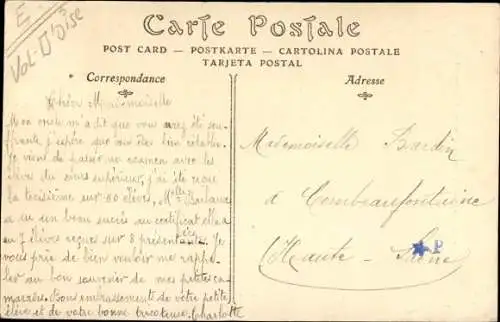 E
Val-D'Oise
Carte Postale
POST CARD — POSTKARTE — CARTOLINA POSTALE
TARJETA POSTAL
Correspondance
Chère Mademoiselle
Mon oncle m'a dit que vous avez été souf-
frante, j'espère que vous êtes bien rétablie.
Je viens de passer un examen avec les
élèves du cours supérieur, j'ai été reçue
la troisième sur 60 élèves, Mlle Barbaux
a eu un beau succès au certificat elle a
eu 7 élèves reçues sur 8 présentées. Je
vous prie de bien vouloir me rappe-
ler au bon souvenir de mes petites ca-
marades. Bons embrassements de votre petite
élève et de votre bonne tricoteuse. Charlotte
Adresse
Mademoiselle Bardin
à Combeaufontaine
(Haute-Saône)
P